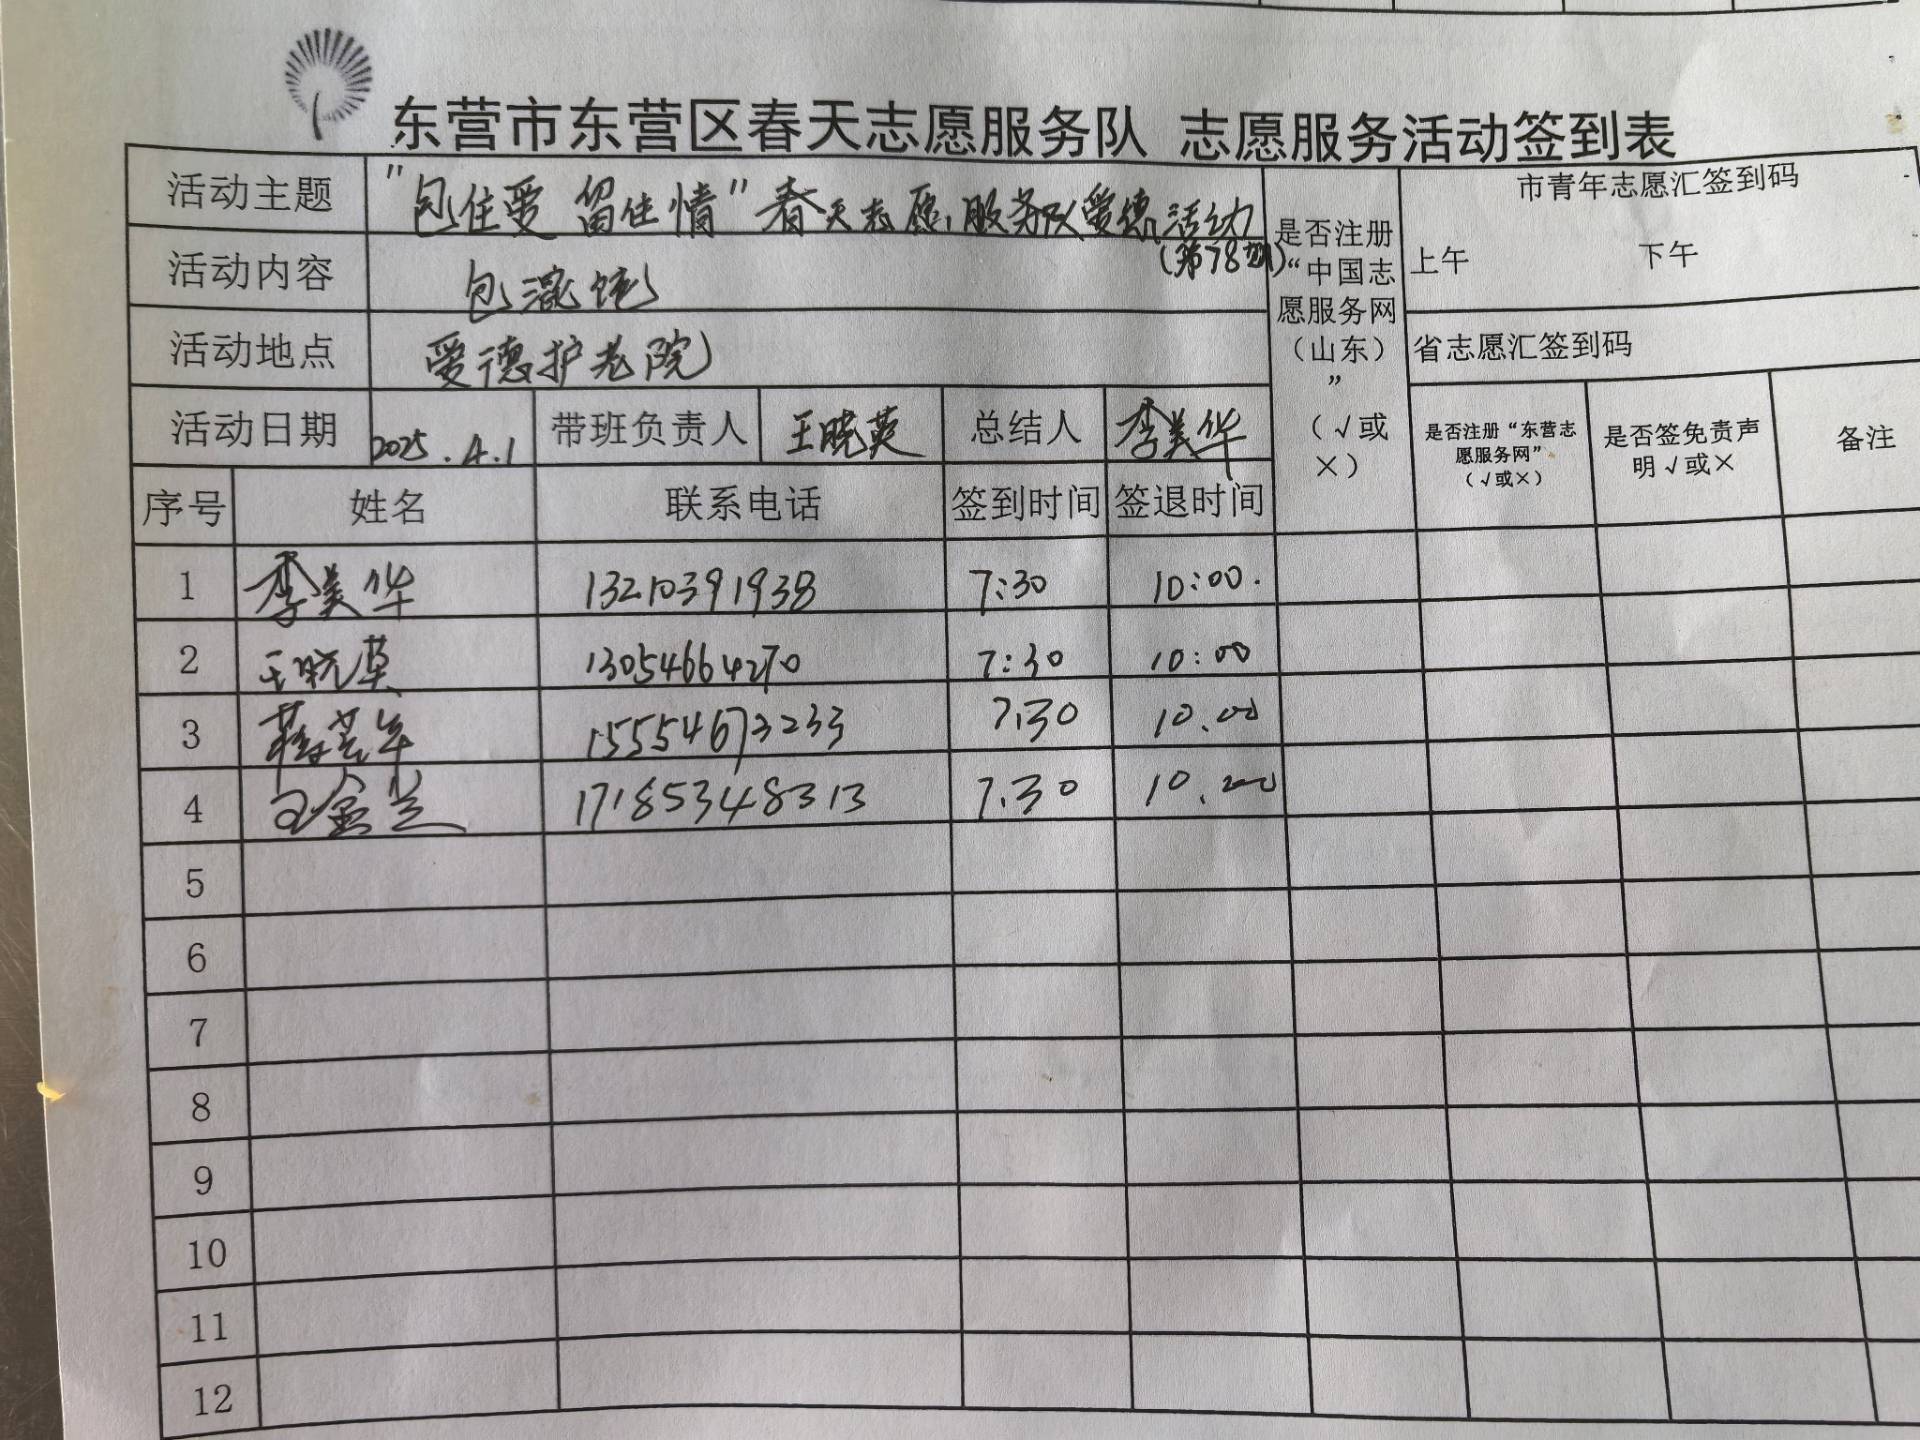 东营市东营区春天志愿服务队 志愿服务活动签到表
活动主题 "包住爱 留住情"春天志愿服务队爱德活动
(第78期)
活动内容 包混饨
活动地点 爱德护老院
是否注册
“中国志
愿服务网
（山东）
”
（√或
×）
市青年志愿汇签到码
上午 下午
省志愿汇签到码
活动日期 2025.4.1 带班负责人 王晓英 总结人 李美华
是否注册“东营志
愿服务网”
（√或×）
是否签免责声
明√或×
备注
序号 姓名 联系电话 签到时间 签退时间
1 李美华 13210391938 7:30 10:00.
2 王晓英 13054664270 7:30 10:00
3 15554673233 7.30 10.00
4 王金兰 17185348313 7.30 10.00
5
6
7
8
9
10
11
12